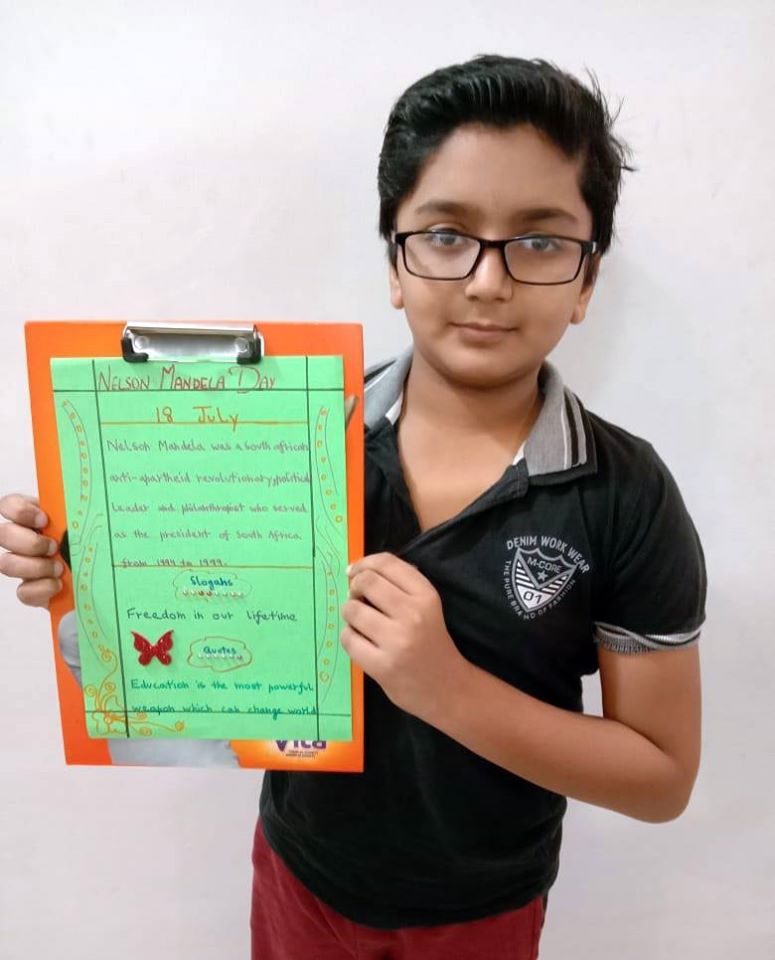 NELSON MANDELA DAY
18 JULY
Nelson Mandela was a South african
anti-apartheid revolutionary, political
Leader and philanthropist who served
as the president of South Africa
from 1994 to 1999.
Slogans
Freedom in our lifetime
Quotes
Education is the most powerful
weapon which can change world
DENIM WORK WEAR
M-CORE
01
THE PURE BRAND OF FASHION